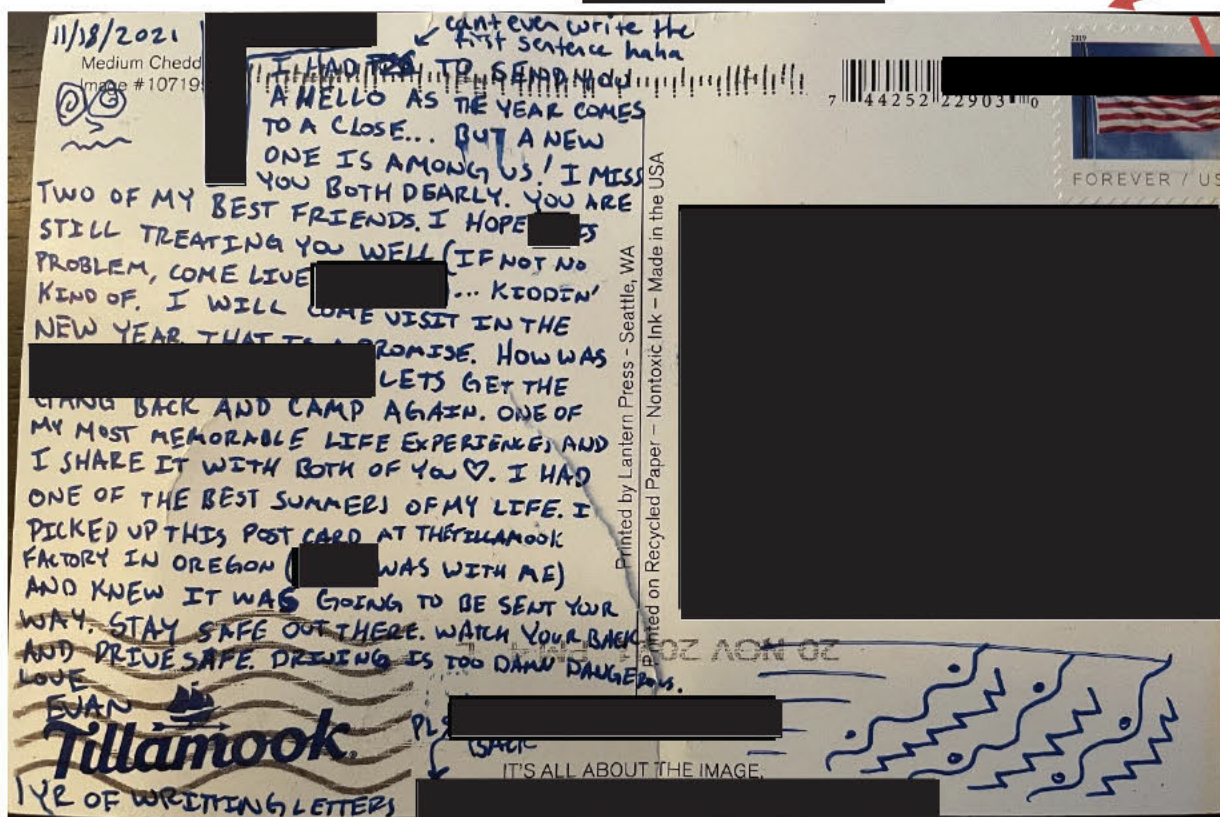 11/18/2021
cant even write the
first sentence haha
Medium Chedd
Image #10719
I HAD TO SEND YOU
A HELLO AS THE YEAR COMES
TO A CLOSE... BUT A NEW
ONE IS AMONG US! I MISS
YOU BOTH DEARLY. YOU ARE
TWO OF MY BEST FRIENDS. I HOPE IS
STILL TREATING YOU WELL (IF NOT NO
PROBLEM, COME LIVE ... KIDDIN'
KIND OF. I WILL COME VISIT IN THE
NEW YEAR THAT IS A PROMISE. HOW WAS
LETS GET THE
GANG BACK AND CAMP AGAIN. ONE OF
MY MOST MEMORABLE LIFE EXPERIENCES AND
I SHARE IT WITH BOTH OF YOU ♡. I HAD
ONE OF THE BEST SUMMERS OF MY LIFE. I
PICKED UP THIS POST CARD AT THE TILLAMOOK
FACTORY IN OREGON ( WAS WITH ME)
AND KNEW IT WAS GOING TO BE SENT YOUR
WAY. STAY SAFE OUT THERE. WATCH YOUR BACK
AND DRIVE SAFE. DRIVING IS TOO DAMN DANGEROUS.
LOVE
EVAN
Tillamook
1 YR OF WRITTING LETTERS
PLS
BACK
IT'S ALL ABOUT THE IMAGE.
Printed by Lantern Press - Seattle, WA
Printed on Recycled Paper – Nontoxic Ink – Made in the USA
20 NOV 202 PM
7 44252 22903 0
2019
FOREVER / US